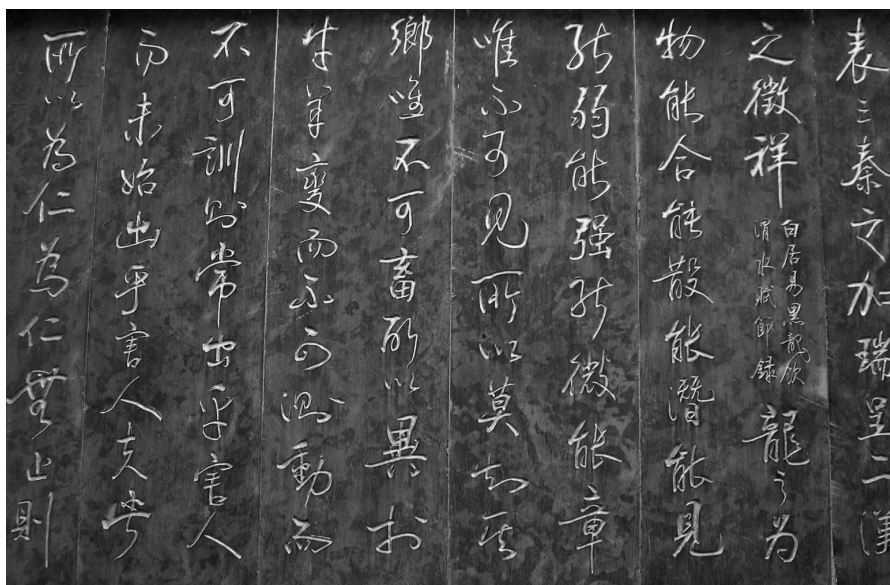 表三秦之加瑞呈二漢
之徵祥
白居易黑龍飲
渭水賦節錄
龍之為
物能合能散能潛能見
能弱能强能微能章
唯不可見所以莫知其
鄉唯不可畜所以異於
牛羊變而不可測動而
不可訓則常出乎害人
而未始出乎害人夫此
所以為仁為仁無止則